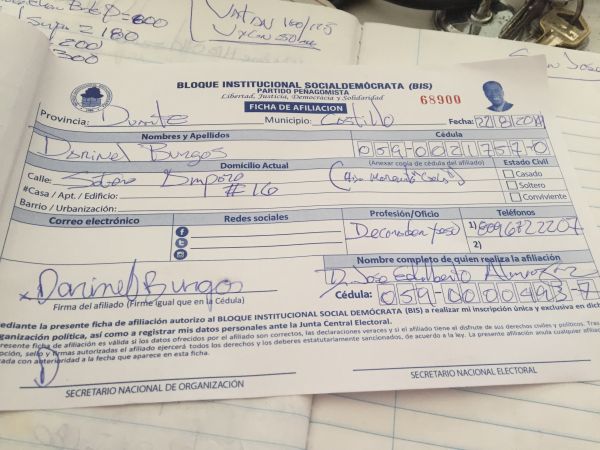 = 180
= 200
300
BLOQUE INSTITUCIONAL SOCIALDEMÓCRATA (BIS)
PARTIDO PEÑAGOMISTA
Libertad, Justicia, Democracia y Solidaridad
FICHA DE AFILIACION
68900
Provincia: Duarte Municipio: Castillo Fecha: 22/8/2019
Nombres y Apellidos Cédula
Darinel Burgos 059-0021757-0
Domicilio Actual (Anexar copia de cédula del afiliado) Estado Civil
Calle:
Casado
#Casa / Apt. / Edificio: #16
Soltero
Barrio / Urbanización:
Conviviente
Correo electrónico Redes sociales Profesión/Oficio Teléfonos
Decorador yeso 1) 8096722207
2)
Nombre completo de quien realiza la afiliación
Darinel Burgos
Cédula: 059-0000493-7
Firma del afiliado (Firme igual que en la Cédula)
mediante la presente ficha de afiliación autorizo al BLOQUE INSTITUCIONAL SOCIAL DEMÓCRATA (BIS) a realizar mi inscripción única y exclusiva en dich
organización política, así como a registrar mis datos personales ante la Junta Central Electoral.
presente ficha de afiliación es válida si los datos ofrecidos por el afiliado son correctos, las declaraciones veraces y si el afiliado tiene el disfrute de sus derechos civiles y políticos. Tras
pción, sello y firmas autorizadas el afiliado ejercerá todos los derechos y los deberes estatutariamente sancionados, de acuerdo a la ley. La presente afiliación anula cualquier afiliac
zada con anterioridad a la fecha que aparece en esta ficha.
SECRETARIO NACIONAL DE ORGANIZACIÓN
SECRETARIO NACIONAL ELECTORAL